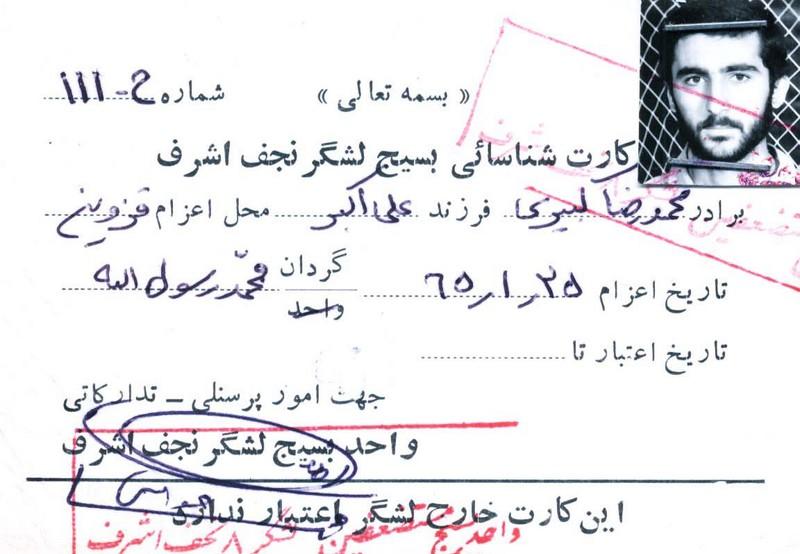 « بسمه تعالی » شماره ح-۱۱۱
کارت شناسائی بسیج لشگر نجف اشرف
برادر محمدرضا کبیری فرزند علی‌اکبر محل اعزام قزوین
تاریخ اعزام ۲۵ر۱ر۶۵ گردان محمد رسول الله
واحد
تاریخ اعتبار تا
جهت امور پرسنلی – تدارکاتی
واحد بسیج لشگر نجف اشرف
این کارت خارج لشگر اعتبار ندارد
واحد بسیج مستضعفین لشگر ۸ نجف اشرف